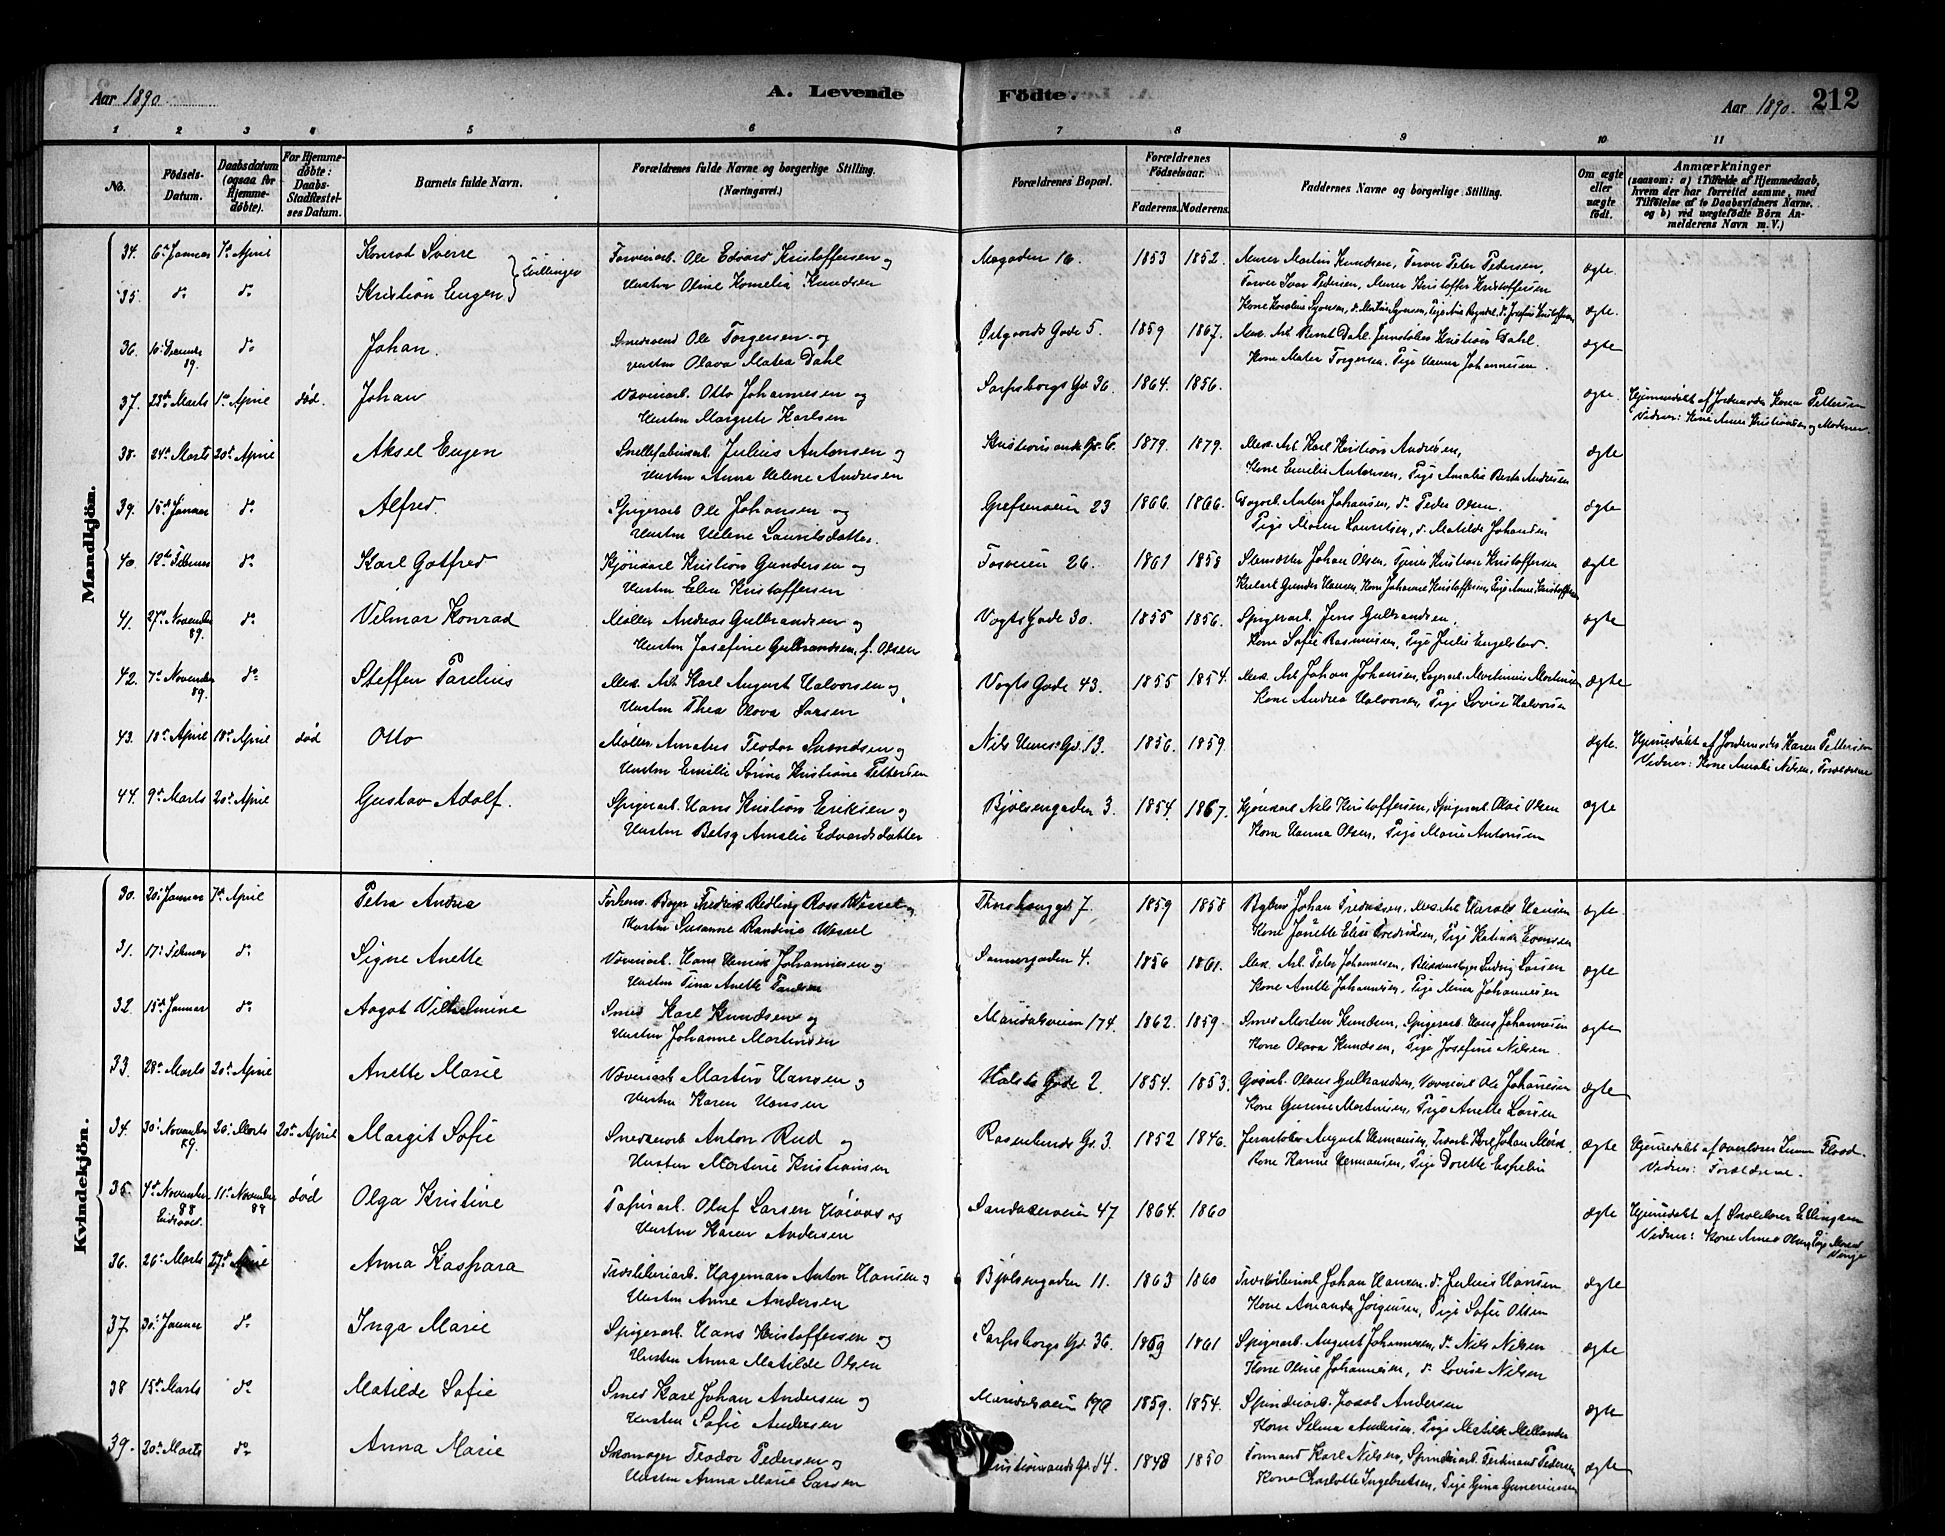 Aar 1890
A. Levende
Födte.
Aar 1890.
212
1 2 3 4 5 6 7 8 9 10 11
No.
Födsels-Datum.
Daabsdatum (ogsaa for Hjemme-døbte).
For Hjemme-døbte: Daabs-Stadfæstel-ses Datum.
Barnets fulde Navn.
Forældrenes fulde Navne og borgerlige Stilling.
(Næringsvei.)
Forældrenes Bopæl.
Forældrenes Födselsaar.
Faderens. Moderens.
Faddernes Navne og borgerlige Stilling.
Om ægte eller uægte födt.
Anmærkninger
(saasom: a) i Tilfælde af Hjemmedaab, hvem der har forrettet samme, med Tilföielse af to Daabsvidners Navne. og b) ved uægtefödte Börn Anmelderens Navn m. V.)
Mandkjön.
34. 6te Januar 7de April Konrad Sverre } Tvillinger Farveriarb. Ole Edvard Kristoffersen og Hustru Oline Kornelia Knudsen Mogaden 16. 1853 1852. Murer Martin Knudsen, Farver Peter Pedersen, ægte
Farver Ivar Pedersen, Murer Kristoffer Kristoffersen
35. do do Kristian Eugen ægte.
36. 10. Decembr 89. do Johan. Smedsvend Ole Torgersen og Hustru Olava Matea Dahl Østgaards Gade 5. 1859 1867. Mek. Arb. Bernt Dahl, Jernstøber Kristian Dahl. ægte
Kone Mater Torgersen, Pige Hanna Johannesen.
37. 23de Marts 1ste April død. Johan Væveriarb. Otto Johannesen og Hustru Margrete Karlsen Sarpsborgs Gd. 36. 1864. 1856. ægte. Hjemmedøbt af Jordemoder Karen Pettersen
Vidner: Kone Anne Kristiansen og Moderen.
38. 24de Marts 20de April Aksel Eugen Julius Antonsen og Hustru Anna Helene Andresen Kristiansands Gd. 6. 1879. 1879. Mek. Arb. Karl Kristian Andresen, ægte
Kone Emilie Antonsen, Pige Amalia Andresen
39. 15de Januar do Alfred. Spigerarb. Ole Johansen og Hustru Helene Lauritsdatter. Grefsenveien 23 1866. 1866. Dagarb. Anton Johansen, do Peder Olsen. ægte
Pige Maren Lauritsen, do Matilde Johansen
40. 12te Februar do Karl Gotfred Kjørekarl Kristian Gundersen og Hustru Elen Kristoffersen Fosveien 26. 1861 1858 Johan Olsen, Kristian Kristoffersen ægte
41. 27de November 89. do Vilmar Konrad Møller Andreas Gulbrandsen og Hustru Josefine Gulbrandsen, f. Olsen Vogts Gade 30. 1855 1856. Spigerarb. Jens Gulbrandsen. ægte
Kone Sofie Rasmussen, Pige Julie Engelstad.
42. 7de November 89. do Steffen Parelius Mek. Arb. Karl August Halvorsen og Hustru Thea Olava Larsen Vogts Gade 43. 1855 1854. Mek. Arb. Johan Johansen, Martinius Martinsen ægte
Kone Andrea Halvorsen, Pige Lovise Halvorsen
43. 10de April 18de April død Otto Møller Amatus Teodor Svendsen og Hustru Emilie Sørine Kristiane Pettersen Nils Huus Gd. 13. 1856. 1859. ægte. Hjemmedøbt af Jordemoder Karen Pettersen
Vidner: Kone Amalie Nilsen, Forældrene
44. 9de Marts 20de April Gustav Adolf. Spigerarb. Hans Kristian Eriksen og Hustru Betsy Amalie Edvardsdatter Bjølsengaden 3. 1854. 1867. Kjørekarl Nils Kristoffersen, Spigerarb. Olai Olsen ægte
Kone Hanna Olsen, Pige Marie Antonsen
Kvindekjön.
30. 20. Januar 7de April Petra Andrea Fredrik Redling Rose Wessel og Hustru Susanne Randine Wessel Thorshauggd. 7. 1859 1858 Johan Fredriksen, Mek. Arb. Harald Hansen ægte
Kone Janette Elise Fredriksen, Pige Katinka Evensen
31. 17. Februar do Signe Anette Væveriarb. Hans Henrik Johannesen og Hustru Tina Anette Paulsen Sannergaden 4. 1856 1861. Mek. Arb. Peter Johannesen, Blikkenslager Ludvig Larsen ægte
Kone Anette Johannesen, Pige Anna Johannesen
32. 15de Januar do Aagot Vilhelmine Smed Karl Knudsen og Hustru Johanne Martinsen Maridalsveien 174. 1862. 1859. Smed Morten Knudsen, Spigerarb. Hans Johannesen ægte
Kone Olava Knudsen, Pige Josefine Nilsen.
33. 28de Marts 20de April Anette Marie Væveriarb. Martin Hansen og Hustru Karen Hansen Gade 2 1854. 1853. Gasarb. Olaus Gulbrandsen, Væveriarb. Ole Johansen ægte
Kone Gurine Martinsen, Pige Anette Larsen
34. 30. November 89. 20. Marts 20de April Margit Sofie Snedkerarb. Anton Rud og Hustru Martine Kristiansen Rosenlunds Gd. 3 1852 1846. Jernstøber August Hermansen, Karl Johan ægte
Kone Karine Hermansen, Pige Dorette Espelin
Hjemmedøbt af Overlærer Flood.
Vidner: Forældrene.
35. 4de November 88 Eidsvold. 11te November 88 død Olga Kristine Papirarb. Oluf Larsen og Hustru Karen Andersen Sandakerveien 47 1864. 1860 ægte Hjemmedøbt af Skolelærer Ellingsen
Vidner: Kone Anne Olsen, Pige
36. 26de Marts 27de April Anna Kaspara Hageman Anton Hansen og Hustru Anne Andersen Bjølsengaden 11. 1863 1860 Johan Hansen, do Julius Hansen ægte
Kone Amanda Jørgensen, Pige Sofie Olsen
37 30. Januar do Inga Marie Spigerarb. Hans Kristoffersen og Hustru Anna Matilde Olsen Sarpsborgs Gd. 36. 1869 1861 Spigerarb. August Johannesen, do Nils Nilsen ægte
Kone Oline Johannesen, do Lovise Nilsen
38 15de Marts do Matilde Sofie Smed Karl Johan Andersen og Hustru Sofie Andersen Maridalsveien 190 1859. 1854. Spinderiarb. Jakob Andersen ægte
Kone Selma Andersen, Pige Matilde Mellander
39. 20de Marts do Anna Marie Skomager Teodor Pedersen og Hustru Anna Marie Larsen Kristiansands Gd. 14. 1848 1850 Formand Karl Nilsen, Spinderiarb. Ferdinand Pedersen ægte
Kone Charlotte Ingebretsen, Pige Gina Guneriussen